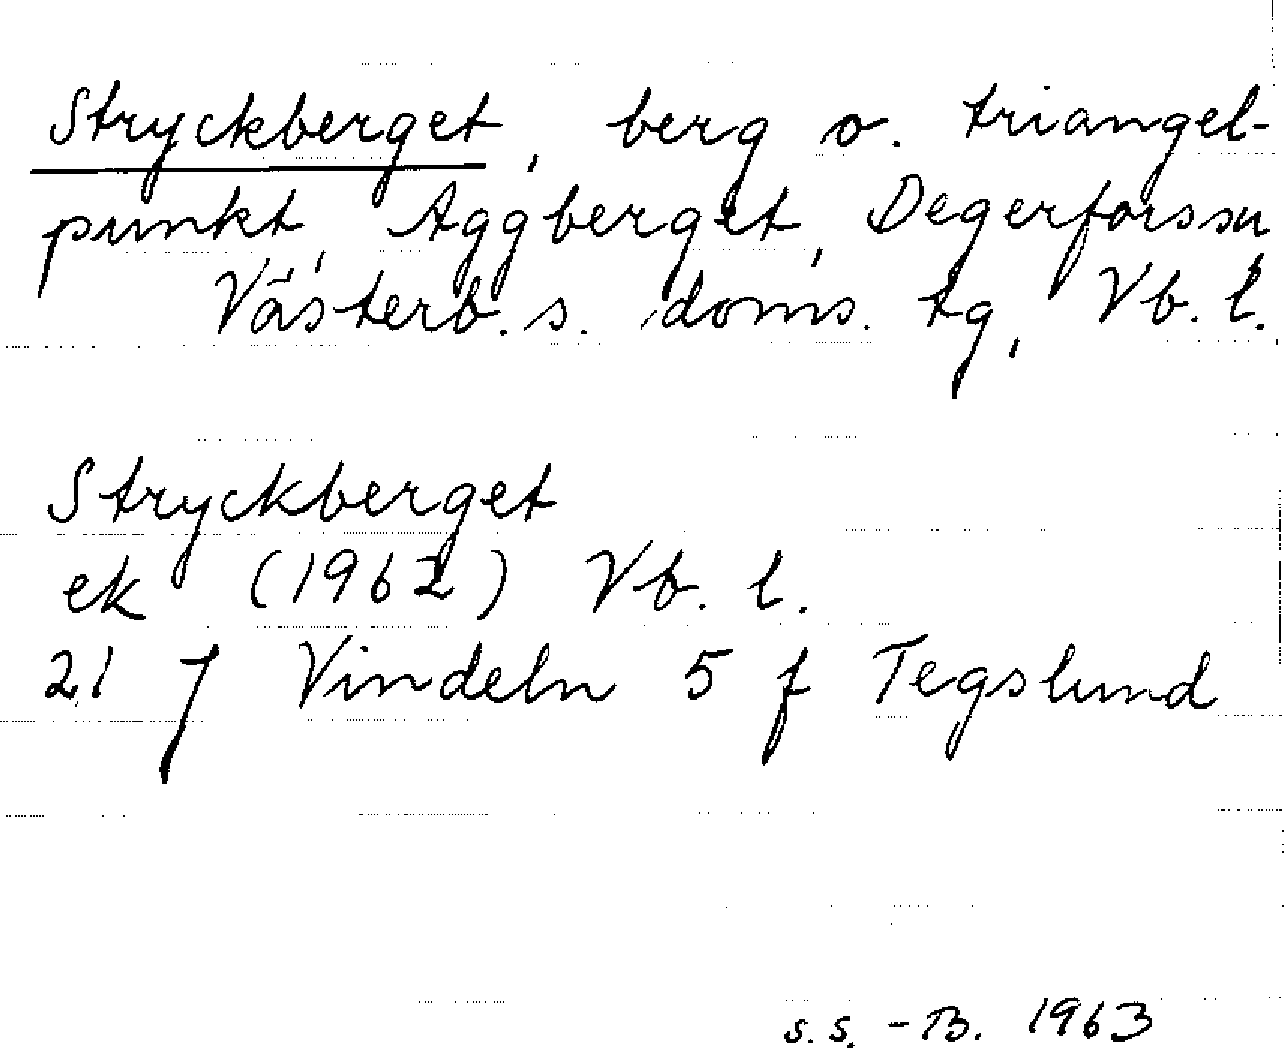 Stryckberget, berg o. triangel-
punkt, Aggberget, Degerfors sn
Västerb. s. doms. tg, Vb. l.
Stryckberget
ek (1962) Vb. l.
21 J Vindeln 5 f Tegslund
s.s. - B. 1963